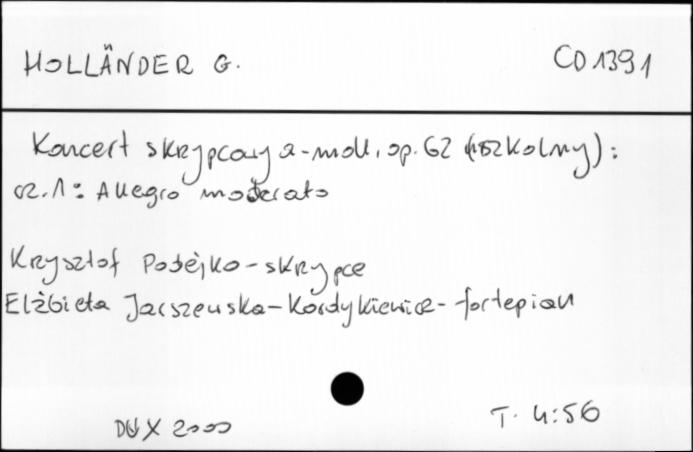 HOLLÄNDER G.
CD 1391
Koncert skrzypcowy a-moll, op. 62 (szkolny):
cz. 1: Allegro moderato
Krzysztof Podejko - skrzypce
Elżbieta Jarszewska-Kordykiewicz - fortepian
DUX 2000
T. 4:56